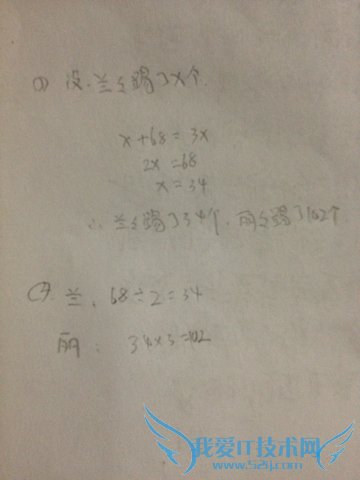 ① 设,兰兰踢了x个.
x+68=3x
2x=68
x=34
∴兰兰踢了34个,丽丽踢了102个
② 兰、68÷2=34
丽: 34×3=102
我爱IT技术网
www.52ij.com